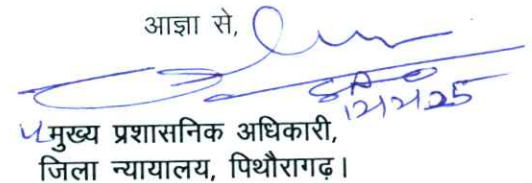 आज्ञा से,
मुख्य प्रशासनिक अधिकारी,
जिला न्यायालय, पिथौरागढ़।